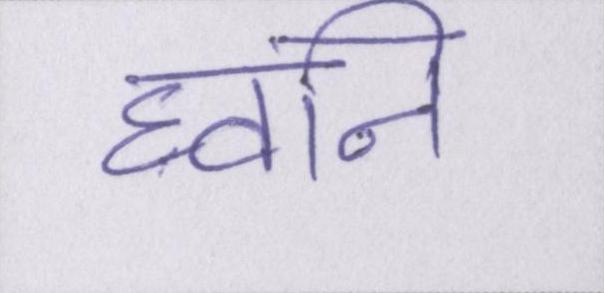 ध्वनि